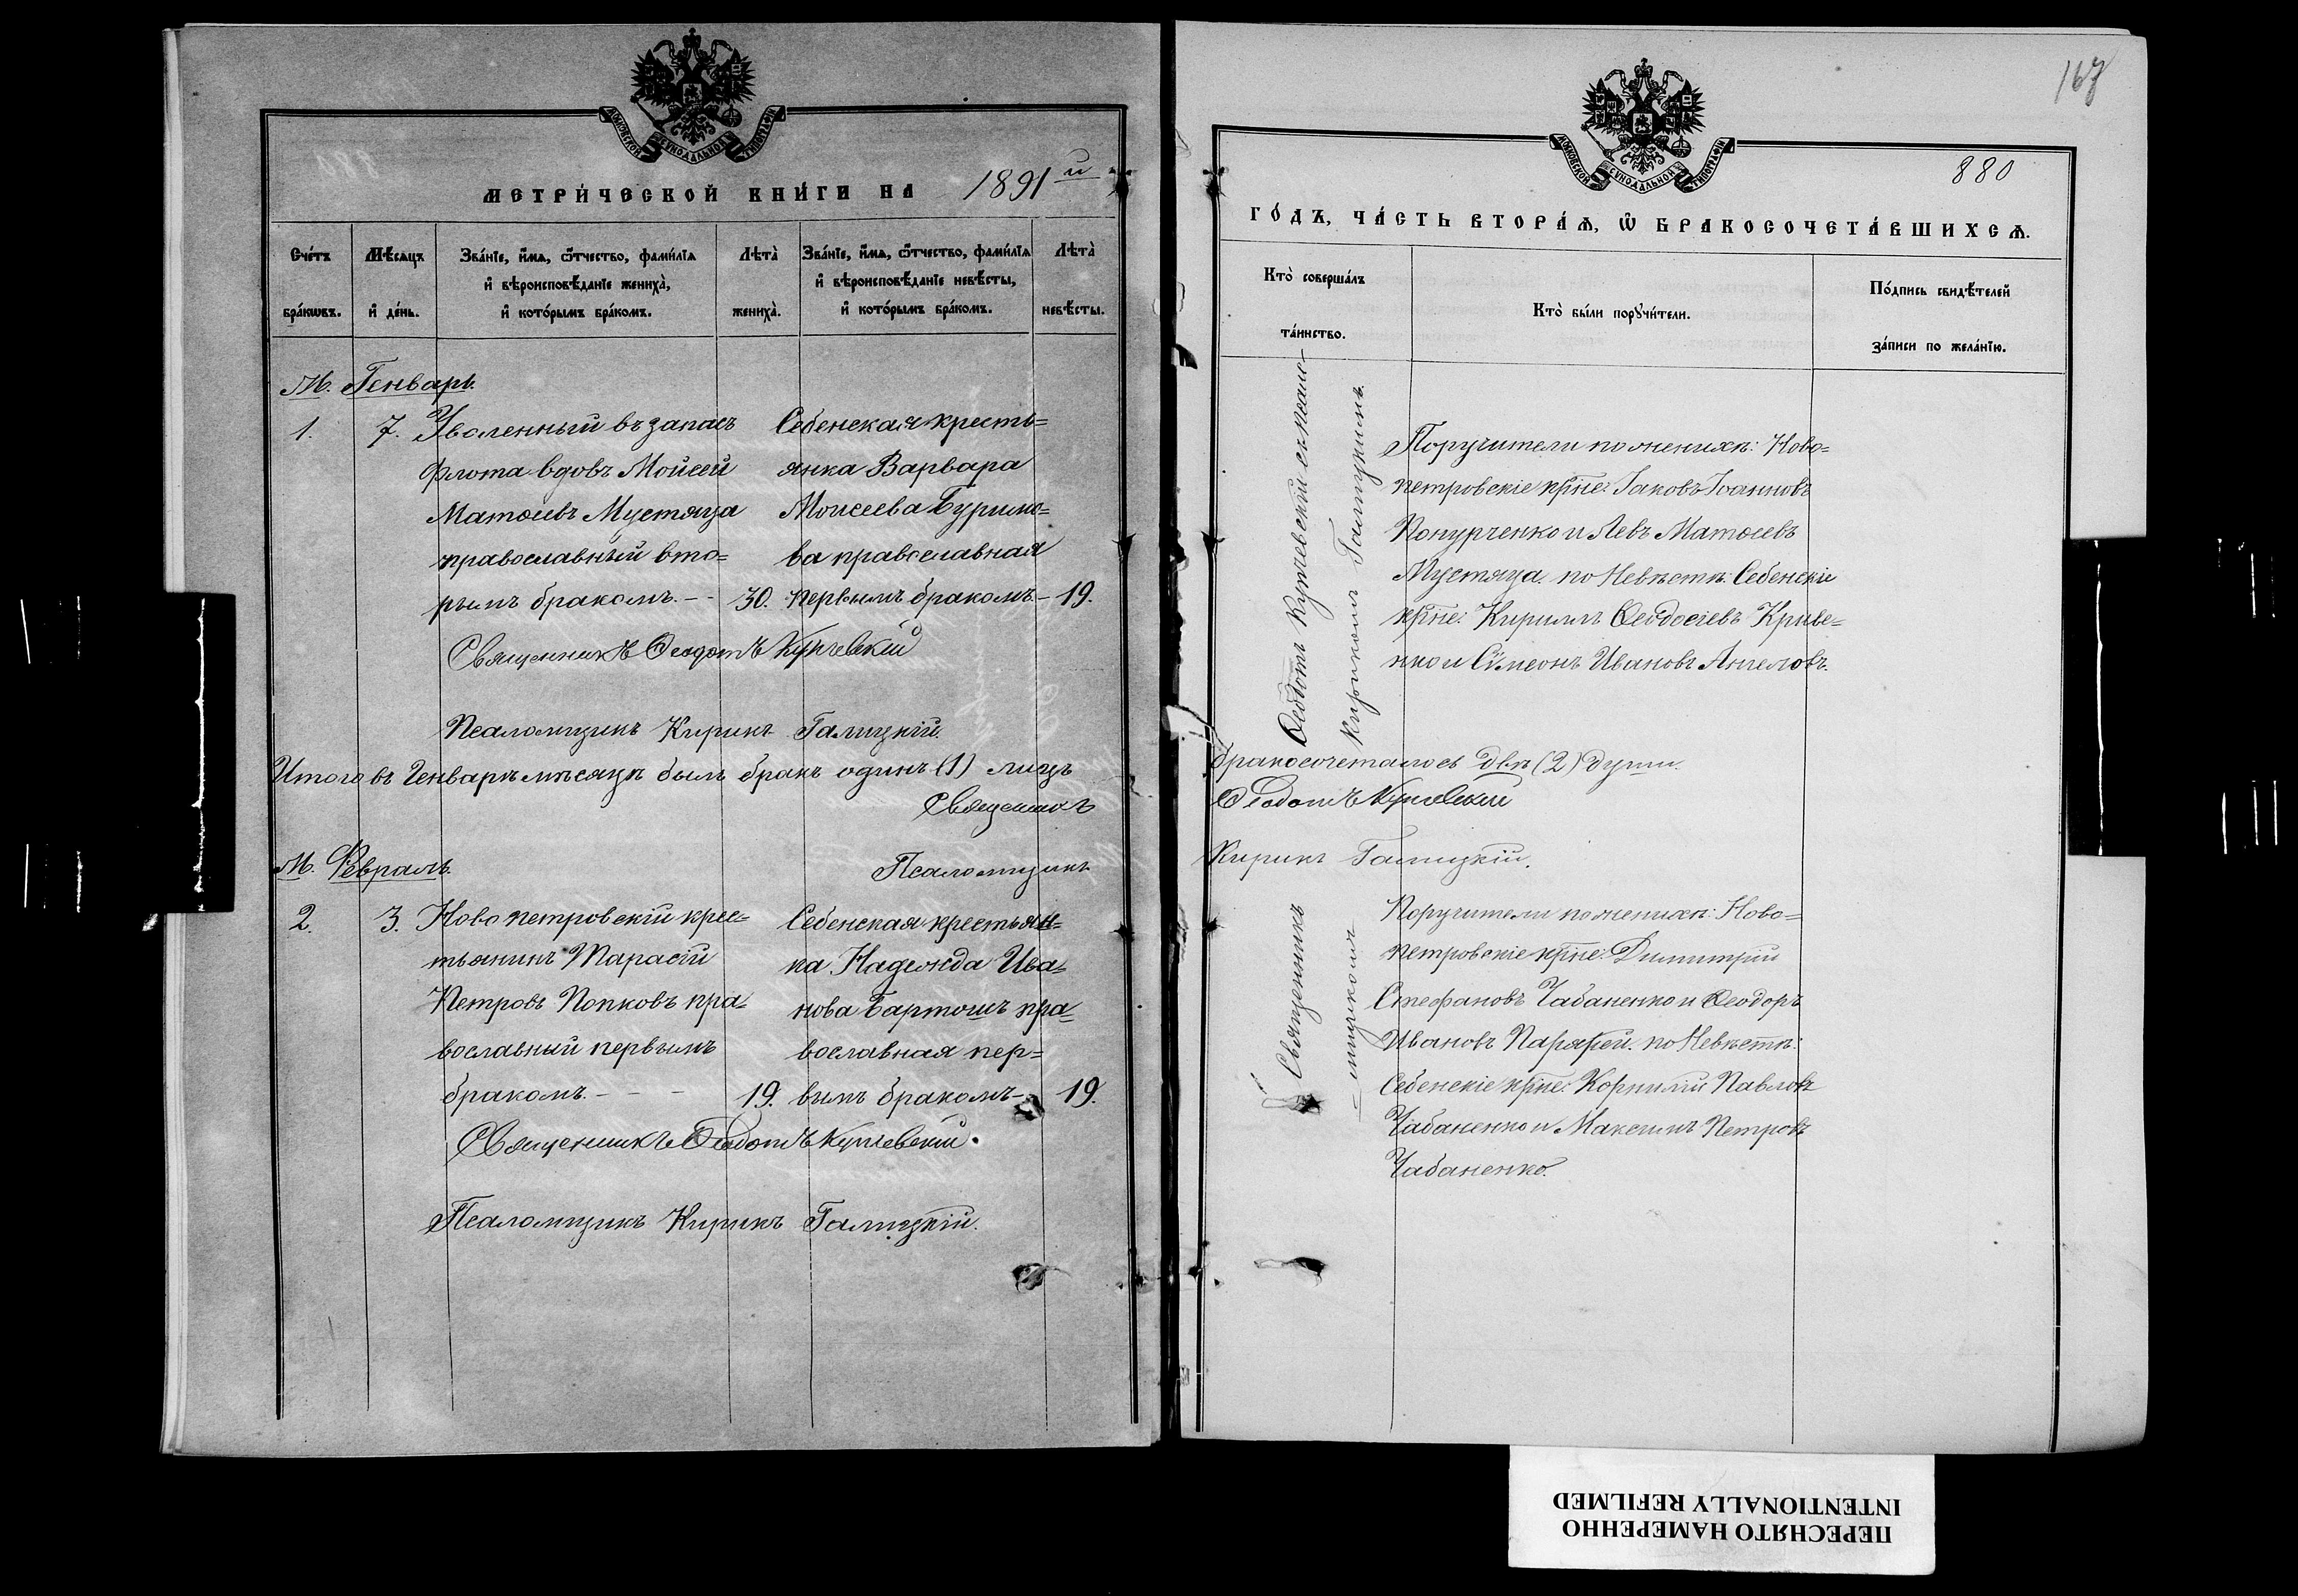 МЕТРИ́ЧЕСКОЙ КНИ́ГИ НА 1891й
Сче́тъ бра́кѡвъ.
Мѣ́сяцъ и де́нь.
Зва́нїе, и́мя, ѻ́тчество, фами́лїя
и вѣроисповѣ́данїе жениха̀,
и кото́рымъ бра́комъ.
Лѣта̀ жениха̀.
Зва́нїе, и́мя, ѻ́тчество, фами́лїя
и вѣроисповѣ́данїе невѣ́сты,
и кото́рымъ бра́комъ.
Лѣта̀ невѣ́сты.
М. Генварь.
1. 7. Уволенный въ запасъ
флота вдовъ Мойсей
Матѳіевъ Мустяца
православный вто=
рымъ бракомъ. - - 30.
Себенская кресть=
янка Варвара
Моисеева Буримо=
ва православная
первымъ бракомъ. - 19.
Священникъ Ѳеодотъ Купчевскій
Псаломщикъ Кирикъ Галицкій.
Итого въ Генварѣ мѣсяцѣ былъ бракъ одинъ (1) лицъ
Священникъ
М. Февраль.
Псаломщикъ
2. 3. Ново петровскій крес=
тьянинъ Тарасій
Петровъ Попковъ пра=
вославный первымъ
бракомъ. - - - 19.
Себенская крестьян=
ка Надежда Ива=
нова Бартошъ пра=
вославная пер=
вымъ бракомъ - 19.
Священникъ Ѳеодотъ Купчевскій.
Псаломщикъ Кирикъ Галицкій.
167
880
ГО́ДЪ, ЧА́СТЬ ВТОРА́Я, Ѡ БРАКОСОЧЕТА́ВШИХСЯ.
Кто̀ соверша́лъ
та́инство.
Кто̀ бы́ли поручи́тели.
По́дпись свидѣ́телей
за́писи по жела́нїю.
Священникъ Ѳеодотъ Купчевскій съ псало=
=мщикомъ Кирикомъ Галицкимъ
Поручители по женихѣ: Ново=
петровскіе крѣне: Іаковъ Іоанновъ
Конурченко и Левъ Матѳіевъ
Мустяца. по Невѣстѣ: Себенскіе
крѣне: Кириллъ Ѳеодосіевъ Криве=
нко и Сѵмеонъ Ивановъ Ангеловъ.
бракосочеталось двѣ (2) души.
Ѳеодотъ Купчевскій
Кирикъ Галицкій.
Поручители по женихѣ: Ново=
петровскіе крѣне: Димитрій
Стефановъ Чабаненко и Ѳеодоръ
Ивановъ Парафей. по Невѣстѣ:
Себенскіе крѣне: Корнилій Павловъ
Чабаненко и Максимъ Петровъ
Чабаненко.
ПЕРЕСНЯТО НАМЕРЕННО
INTENTIONALLY REFILMED